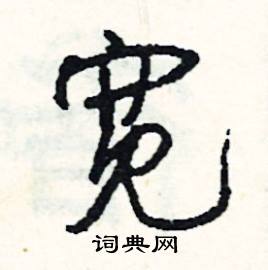 宽
词典网